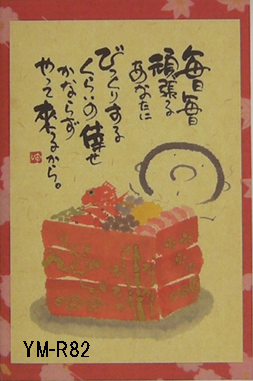 毎日毎日
頑張る
あなたに
びっくりする
くらいの倖せ
かならず
やって来るから。
YM-R82